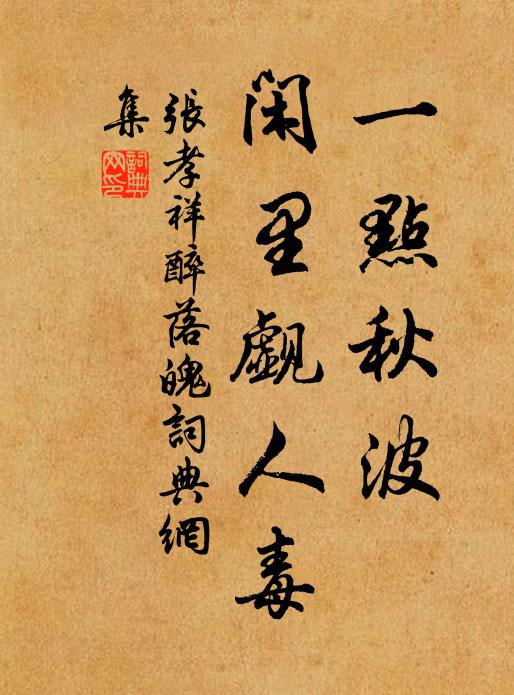 一點秋波
閑里覷人毒
張孝祥醉落魄詞典網
集
詞典网印